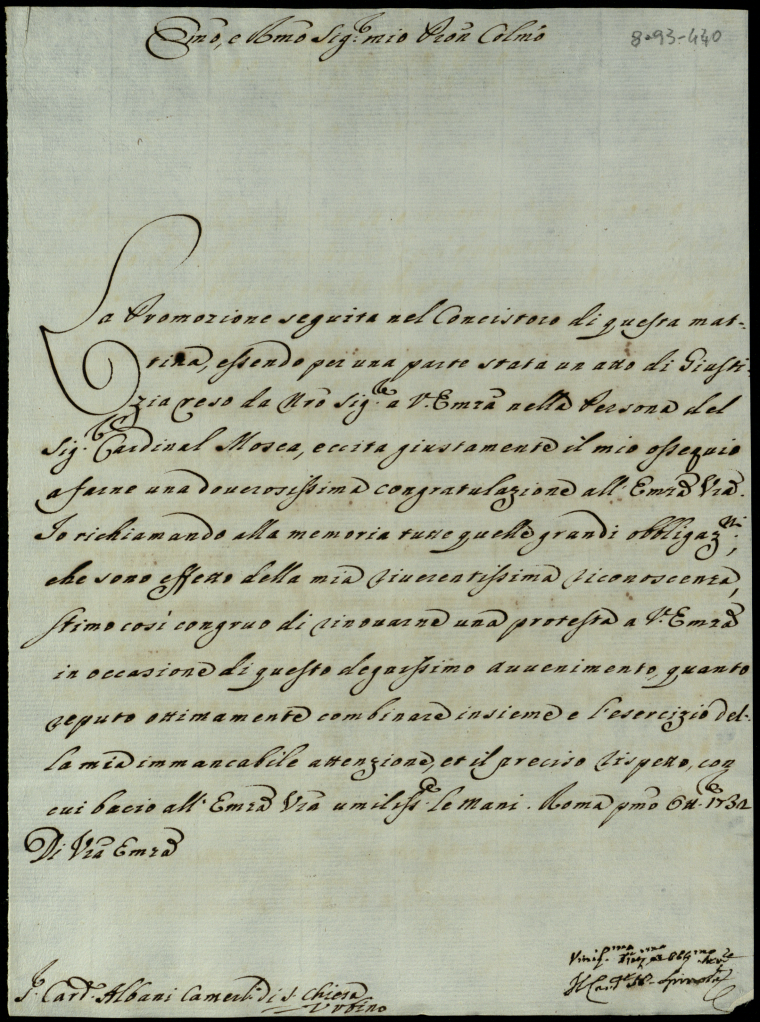 Emo, e Rmo Sig.re mio Pron Colmo
8-93-440
La Promozione seguita nel Concistoro di questa mat-
tina, essendo per una parte stata un atto di Giusti-
zia reso da Nro Sig.re a V. Emza nella Persona del
Sig.r Cardinal Mosca, eccita giustamente il mio ossequio
a farne una doverosissima congratulazione all' Emza Vra.
Io richiamando alla memoria tutte quelle grandi obbligaz.ni,
che sono effetto della mia riverentissima riconoscenza,
stimo così congruo di rinovarne una protesta a V. Emza
in occasione di questo degnissimo avvenimento, quanto
reputo ottimamente combinare insieme e l'esercizio del-
la mia immancabile attenzione, et il preciso rispetto, con
cui bacio all' Emza Vra umiliss.e le mani. Roma pmo Ott.re 1732
Di Vra Emza
Il Card.le Spinola
S. Card. Albani Camerl. di S. Chiesa
Urbino